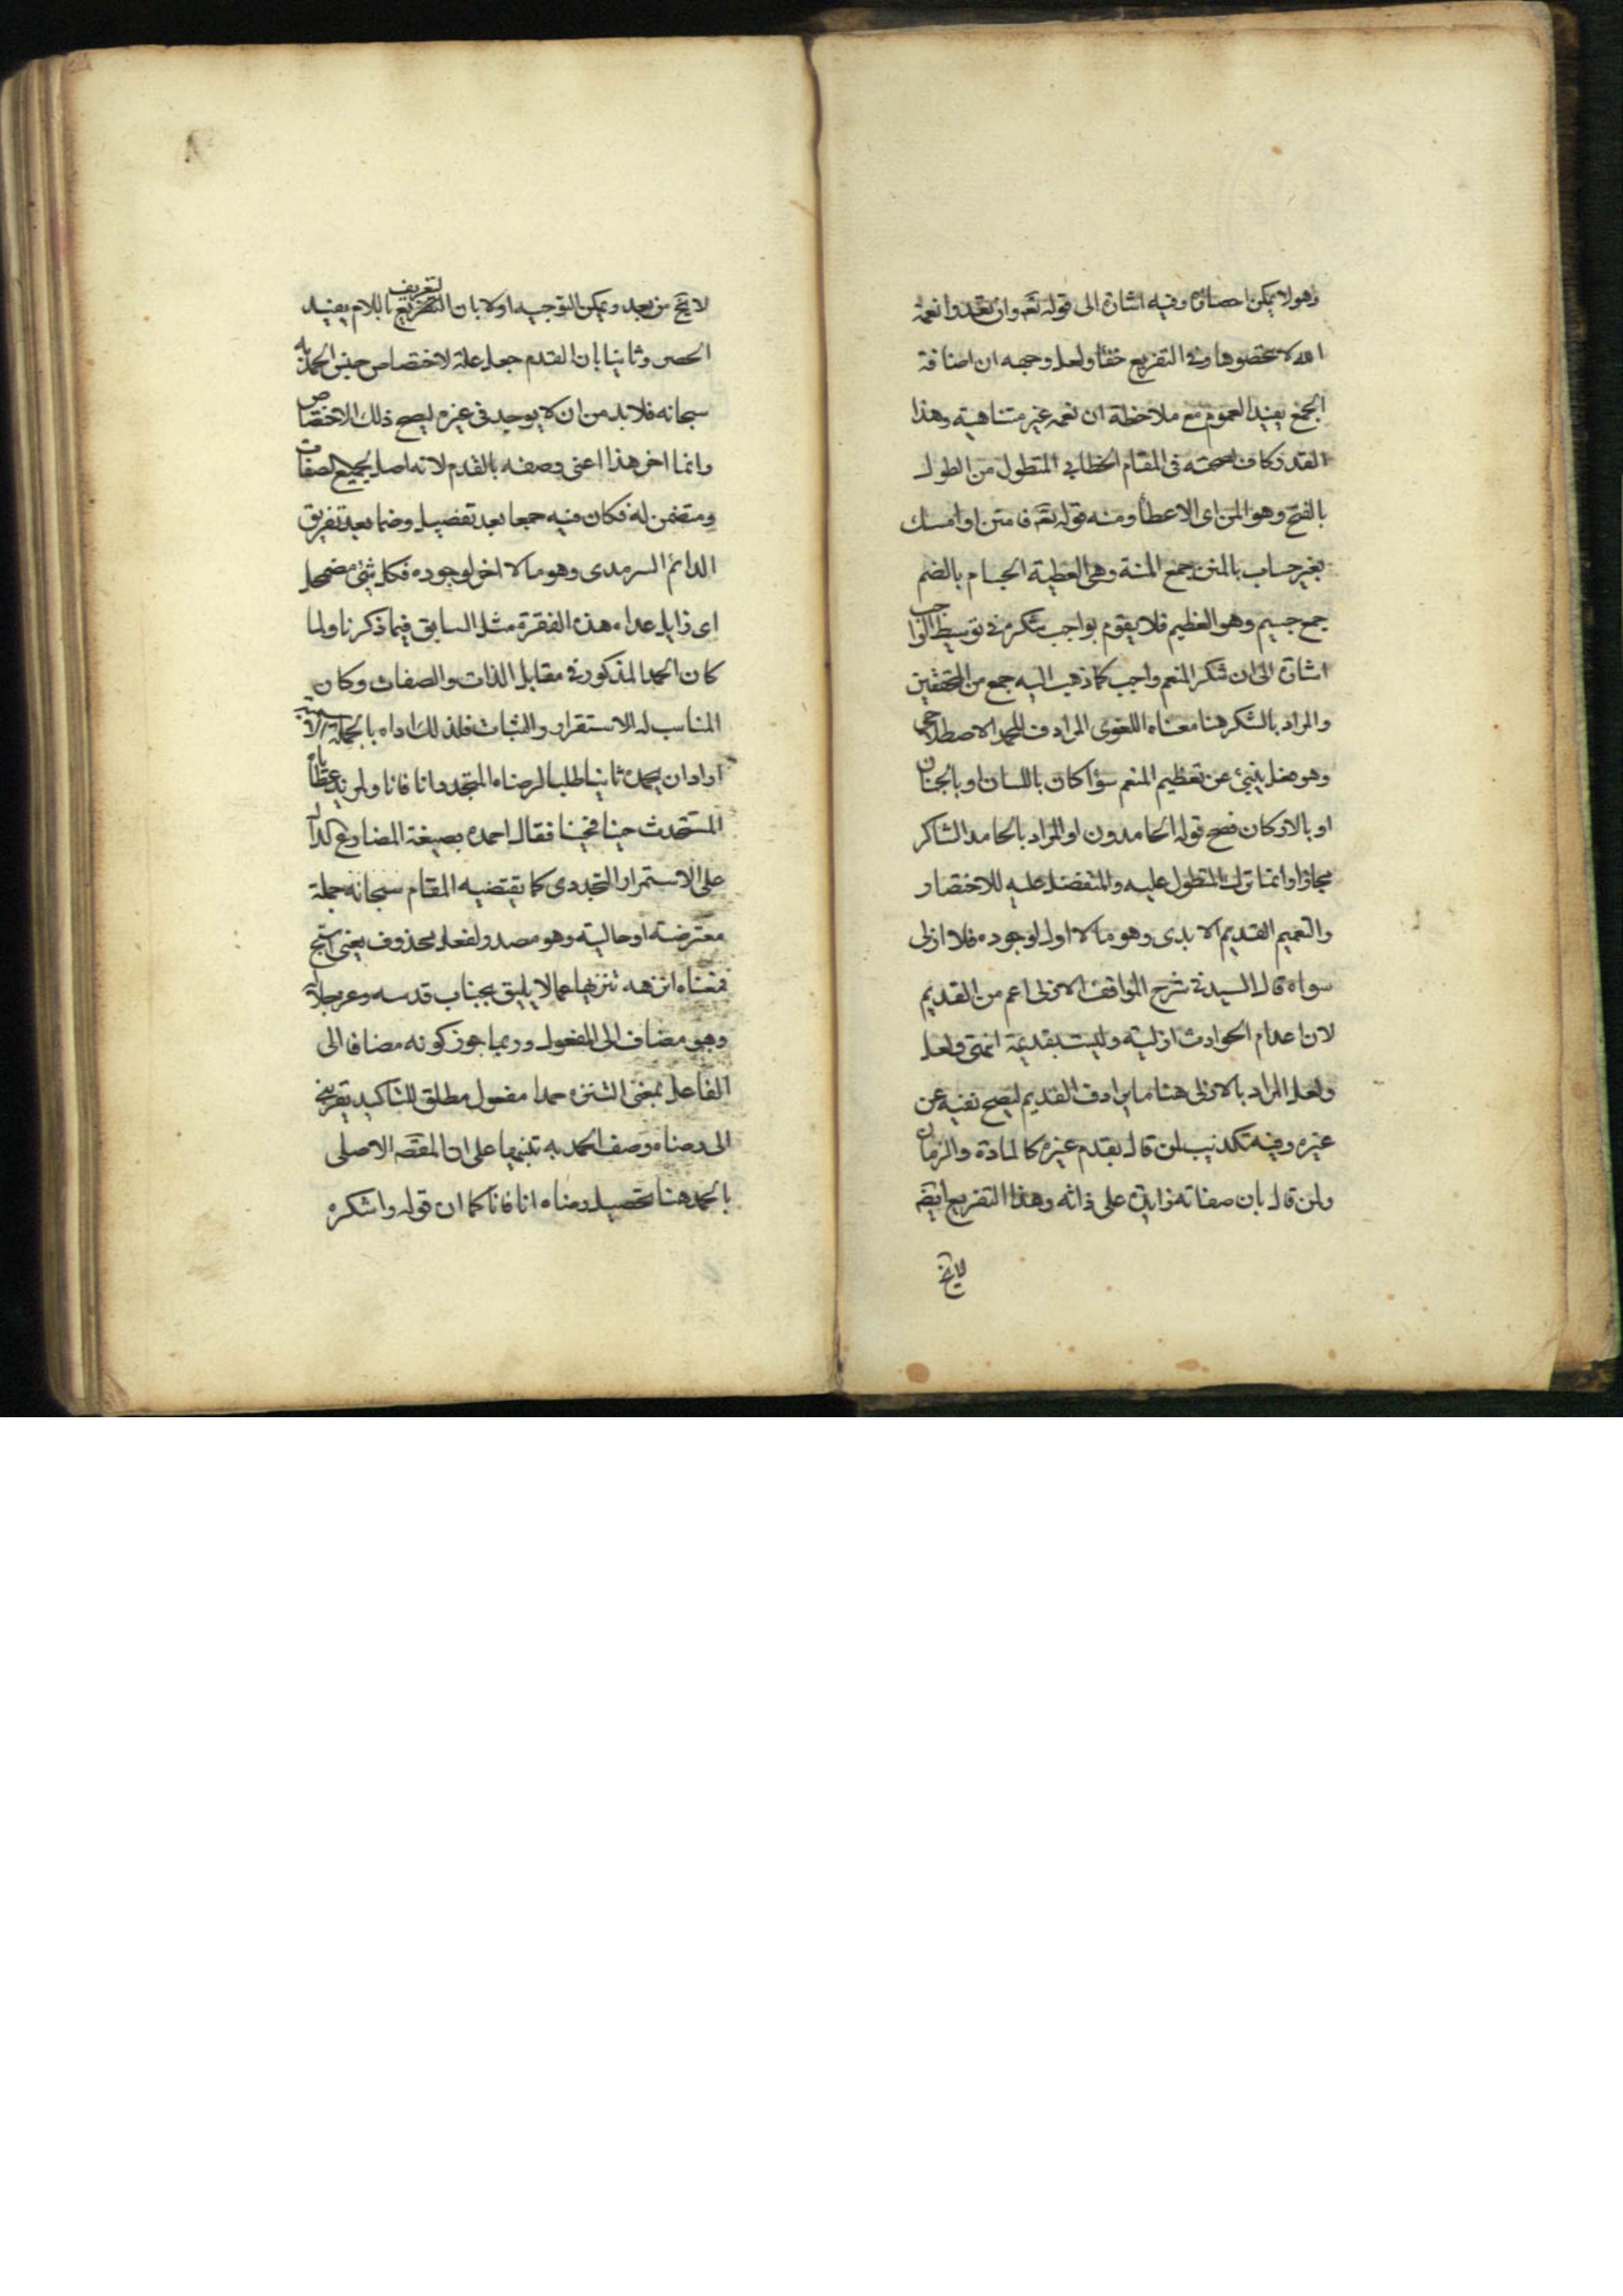 وهو لا يمكن احصاؤه وفيه اشارة الى قوله تعه وان تعدوا نعمة
الله لا تحصوها وفى التفريع خفأ ولعل وجهه ان اضافة
الجمع يفيد العموم مع ملاحظة ان نعمه غير متناهية وهذا
القدر كاف لصحته فى المقام الخطابى المتطول من الطول
بالفتح وهو المن اى الاعطأ ومنه قوله تعه فامنن او امسك
بغير حساب بالمنن جمع المنة وهى العطية الجسام بالضم
جمع جسيم وهو العظيم فلا يقوم بواجب شكره فى توسيط الواجب
اشارة الى ان شكر المنعم واجب كما ذهب اليه جمع من المحققين
والمراد بالشكر هنا معناه اللغوى المرادف للحمد الاصطلاحى
وهو فعل ينبئ عن تعظيم المنعم سوأ كان باللسان او بالجنان
او بالاركان فصح قوله الحامدون او المراد بالحامد الشاكر
مجازا وانما ترك المتطول عليه والمتفضل عليه للاختصار
والتعميم القديم الابدى وهو ما لا اول لوجوده فلا ازلى
سواه قال السيد فى شرح المواقف الازلى اعم من القديم
لان اعدام الحوادث ازلية وليست بقديمة انتهى ولعل
ولعل المراد بالازلى هنا ما يرادف القديم ليصح نفيه عن
غيره وفيه تكذيب لمن قال بقدم غيره كالمادة والزمان
ولمن قال بان صفاته زايدة على ذاته وهذا التفريع ايضه
لا يخ
لا يخ من بعد ويمكن التوجيه اولا بان التعريف باللام يفيد
الحصر وثانيا بان القدم جعل علة لاختصاص جنس الحمد به
سبحانه فلا بد من ان لا يوجد فى غيره ليصح ذلك الاختصاص
وانما اخر هذا اعنى وصفه بالقدم لانه اصل لجميع الصفات
ومتضمن له فكان فيه جمعا بعد تفصيل وضما بعد تفريق
الدائم السرمدى وهو ما لا اخر لوجوده فكل شئ مضمحل
اى زايل عداه هذه الفقرة مثل السابق فيما ذكرنا ولما
كان الحمد المذكور فى مقابل الذات والصفات وكان
المناسب له الاستقرار والثبات فلذلك اداه بالجملة الاسمية
اراد ان يحمده ثانيا طلبا لرضاه المتجدد انا فانا ولمزيد عطاياه
المستحدث حينا فحينا فقال احمده بصيغة المضارع الدال
على الاستمرار التجددى كما يقتضيه المقام سبحانه جملة
معترضة او حالية وهو مصدر لفعل محذوف يعنى اسبح
فمعناه انزهه تنزيها عما لا يليق بجناب قدسه وعز جلاله
وهو مضاف الى المفعول وربما جوز كونه مضافا الى
الفاعل بمعنى التنزه حمدا مفعول مطلق للتاكيد يقربنى
الى رضاه وصف الحمد به تنبيها على ان المقصه الاصلى
بالحمد هنا تحصيل رضاه انا فانا كما ان قوله واشكره